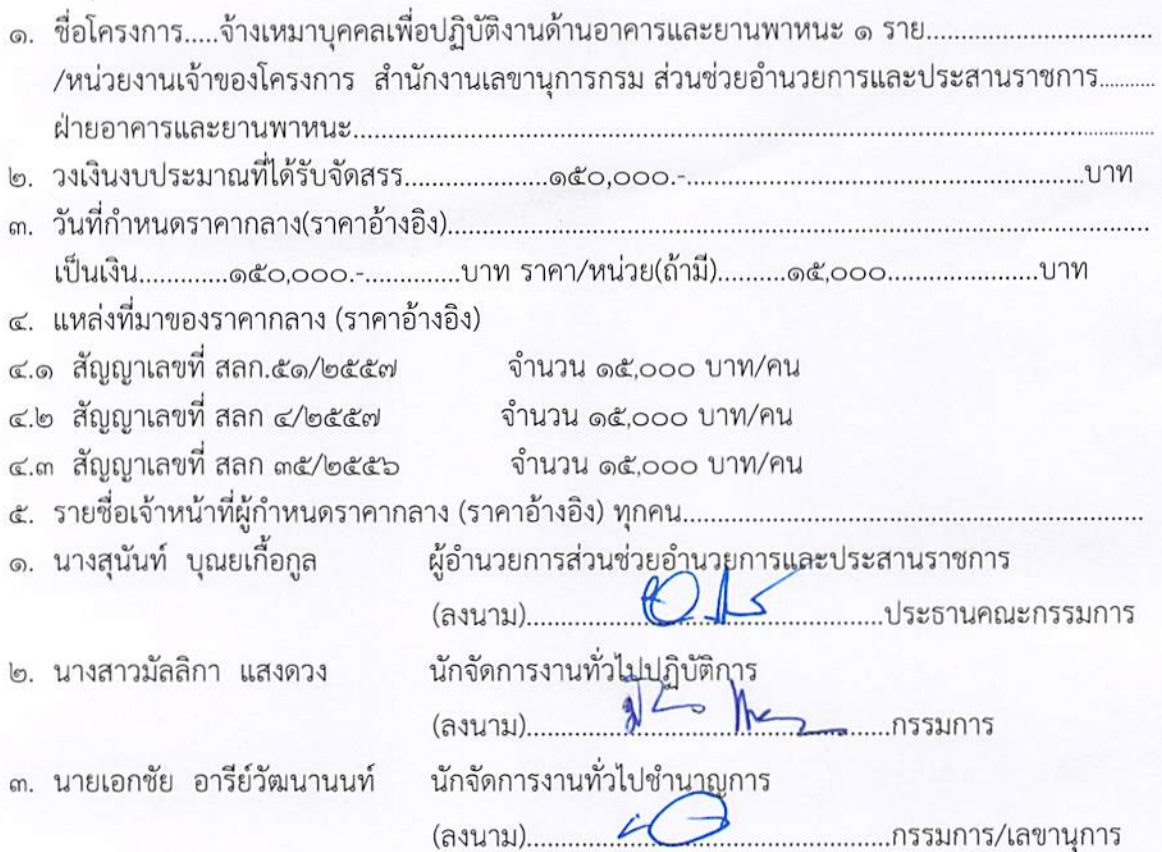 ๑. ชื่อโครงการ.....จ้างเหมาบุคคลเพื่อปฏิบัติงานด้านอาคารและยานพาหนะ ๑ ราย.................................
/หน่วยงานเจ้าของโครงการ สำนักงานเลขานุการกรม ส่วนช่วยอำนวยการและประสานราชการ............
ฝ่ายอาคารและยานพาหนะ...............................................................................................................
๒. วงเงินงบประมาณที่ได้รับจัดสรร......................๑๕๐,๐๐๐.-............................................................บาท
๓. วันที่กำหนดราคากลาง(ราคาอ้างอิง)..........................................................................................................
เป็นเงิน.............๑๕๐,๐๐๐.-..............บาท ราคา/หน่วย(ถ้ามี)..........๑๕,๐๐๐.......................บาท
๔. แหล่งที่มาของราคากลาง (ราคาอ้างอิง)
๔.๑ สัญญาเลขที่ สลก.๕๑/๒๕๕๗ จำนวน ๑๕,๐๐๐ บาท/คน
๔.๒ สัญญาเลขที่ สลก ๔/๒๕๕๗ จำนวน ๑๕,๐๐๐ บาท/คน
๔.๓ สัญญาเลขที่ สลก ๓๕/๒๕๕๖ จำนวน ๑๕,๐๐๐ บาท/คน
๕. รายชื่อเจ้าหน้าที่ผู้กำหนดราคากลาง (ราคาอ้างอิง) ทุกคน......................................................................
๑. นางสุนันท์ บุณยเกื้อกูล ผู้อำนวยการส่วนช่วยอำนวยการและประสานราชการ
(ลงนาม)......................................................ประธานคณะกรรมการ
๒. นางสาวมัลลิกา แสงดวง นักจัดการงานทั่วไปปฏิบัติการ
(ลงนาม).......................................................กรรมการ
๓. นายเอกชัย อารีย์วัฒนานนท์ นักจัดการงานทั่วไปชำนาญการ
(ลงนาม).......................................................กรรมการ/เลขานุการ